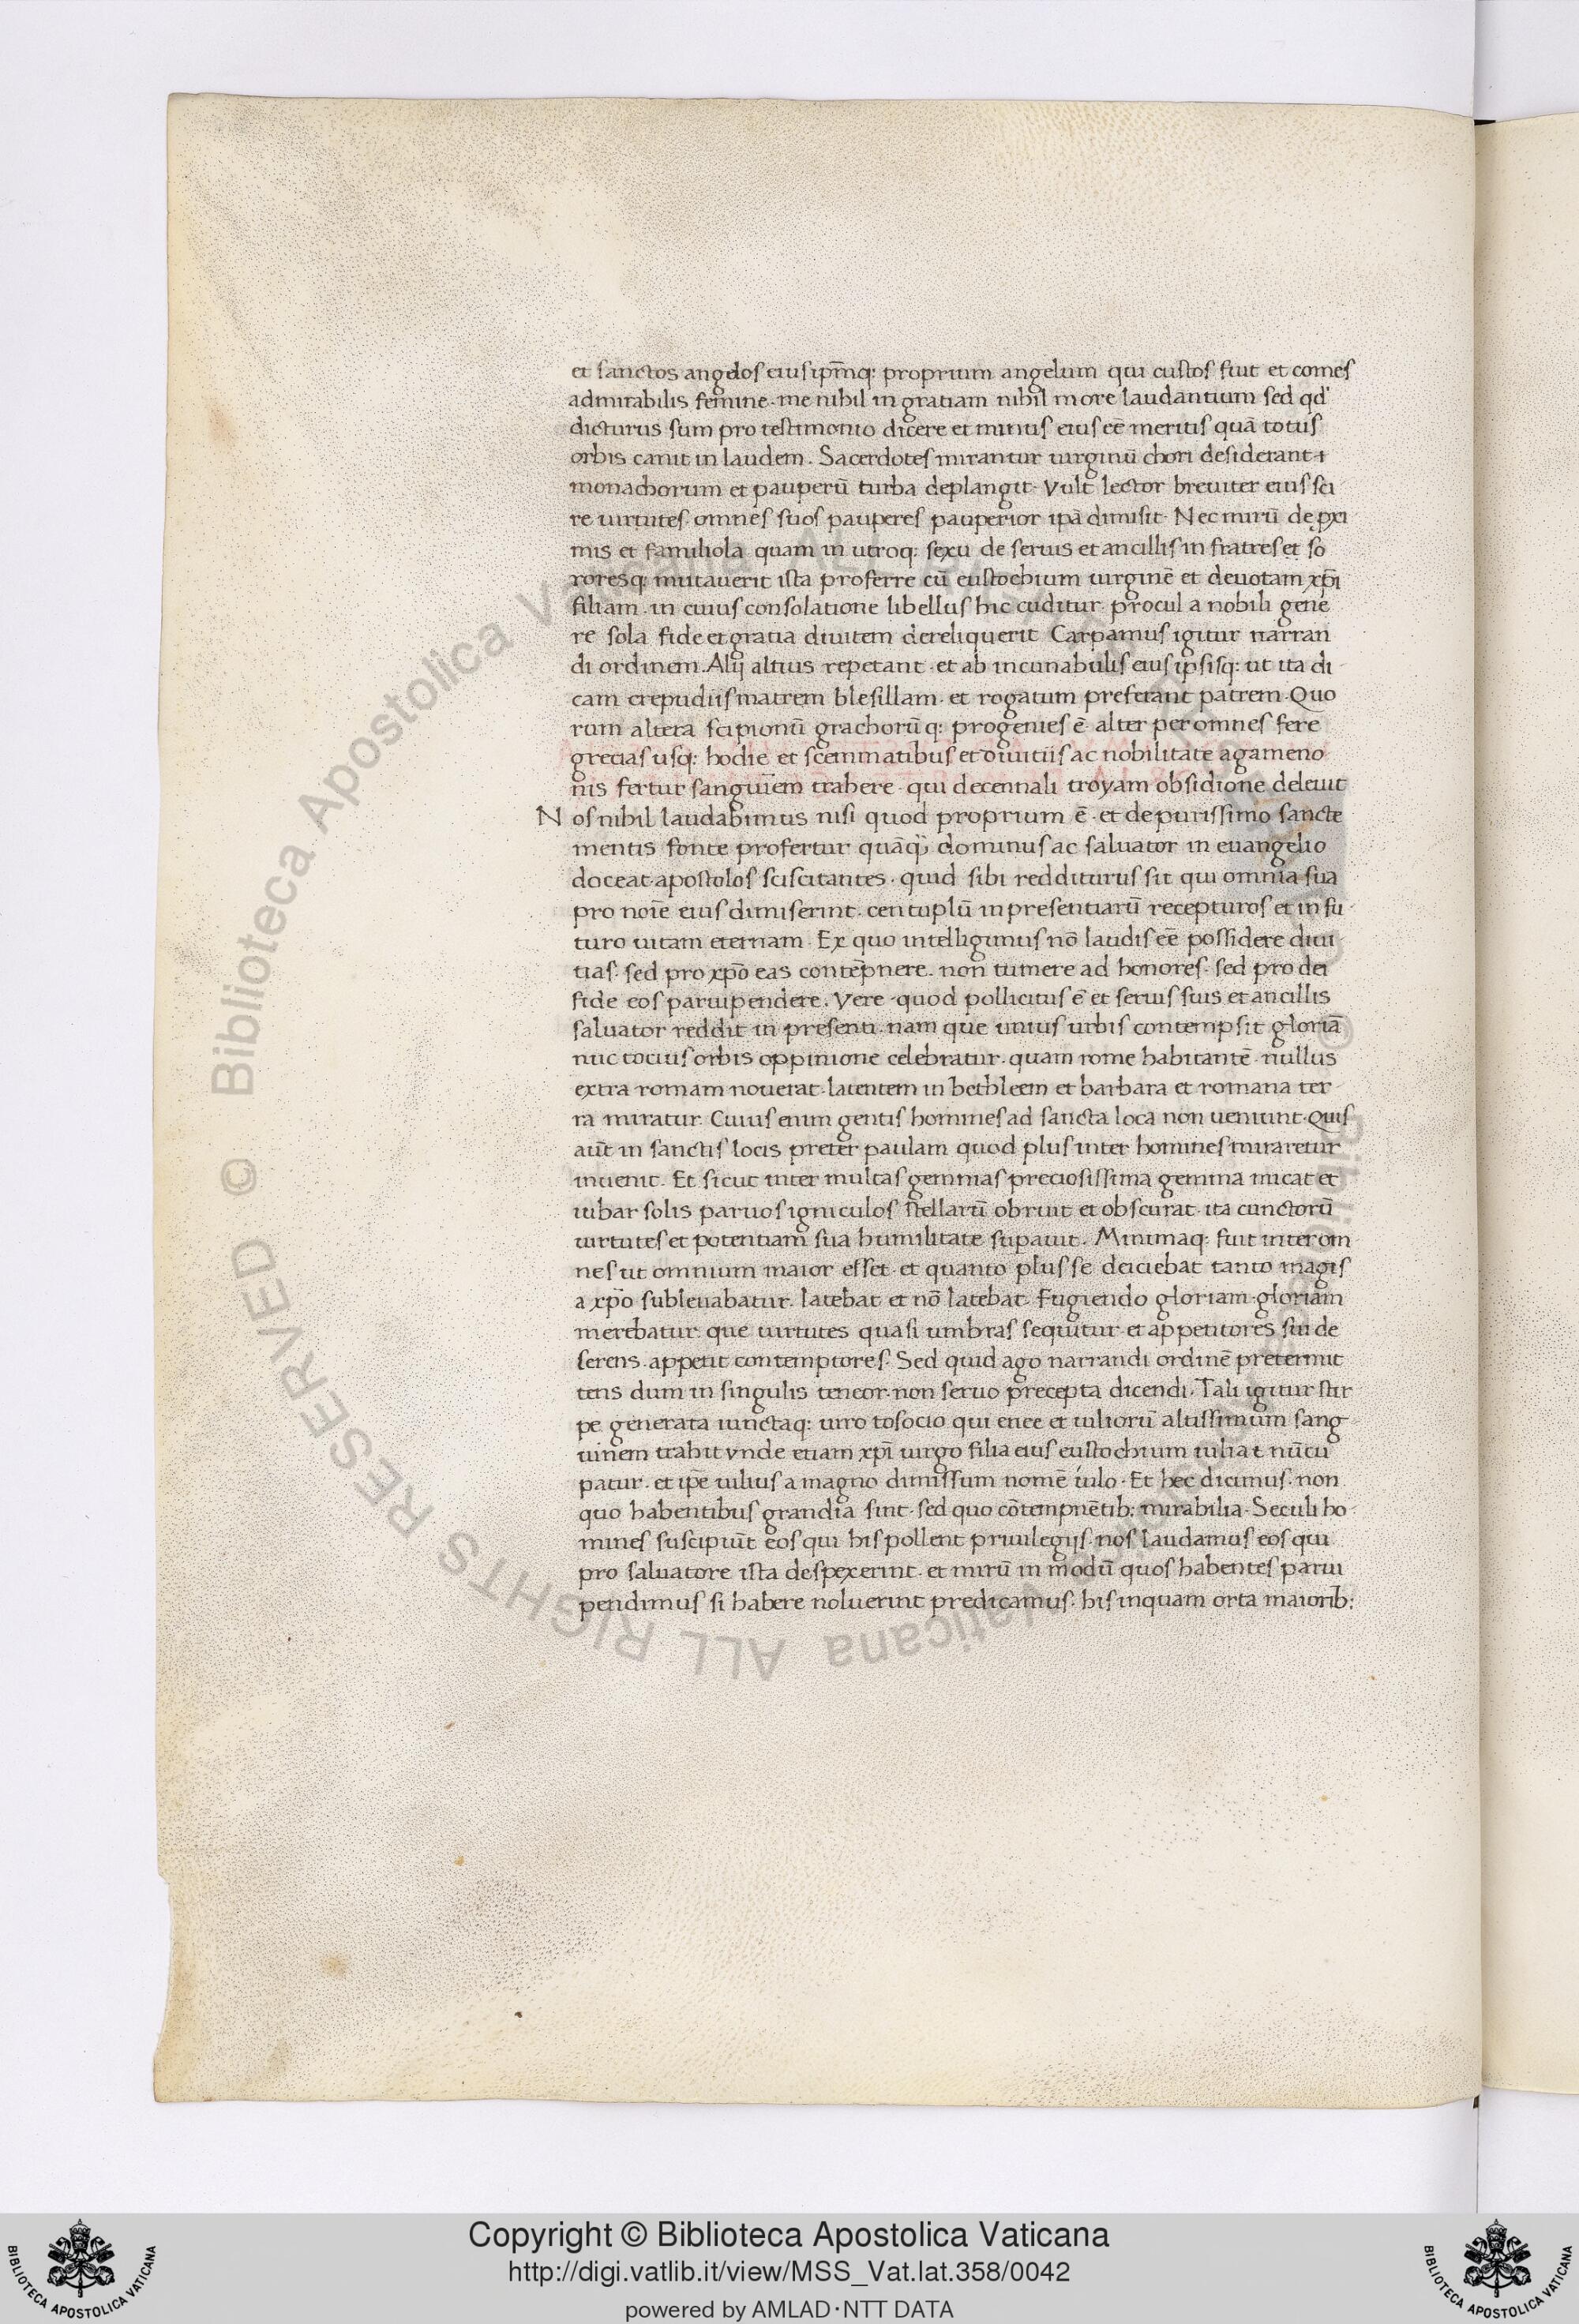 et sanctos angelos eius ip̄mq: proprium angelum qui custos fuit et comes
admirabilis femine. me nihil in gratiam nihil more laudantium sed qd'
dicturus sum pro testimonio dicere et minus eius eē meritis quā totus
orbis canit in laudem. Sacerdotes mirantur uirginū chori desiderant ⁊
monachorum et pauperū turba deplangit. Vult lector breuiter eius sci
re uirtutes. omnes suos pauperes pauperior ipā dimisit. Nec mirū de ꝓxi
mis et familiola quam in utroq: sexu de seruis et ancillis in fratres et so
roresq: mutauerit ista proferre cū eustochium uirginē et deuotam xp̄i
filiam. in cuius consolatione libellus hic cuditur. procul a nobili gene
re sola fide et gratia diuitem dereliquerit Carpamus igitur narran
di ordinem. Alij altius repetant. et ab incunabulis eius ipsisq: ut ita di
cam crepudiis matrem blesillam. et rogatum preferant patrem. Quo
rum altera scipionū grachorūq: progenies ē. alter per omnes fere
grecias usq: hodie et scemmatibus et diuitiis ac nobilitate agameno
nis fertur sanguinem trahere. qui decennali troyam obsidione deleuit
Nos nihil laudabimus nisi quod proprium ē. et de purissimo sancte
mentis fonte profertur quāq̄ dominus ac saluator in euangelio
doceat apostolos sciscitantes. quid sibi redditurus sit qui omnia sua
pro noīe eius dimiserint. centuplū in presentiarū recepturos et in fu
turo uitam eternam. Ex quo intelligimus nō laudis eē possidere diui
tias. sed pro xp̄o eas contēpnere. non tumere ad honores. sed pro dei
fide eos paruipendere. Vere quod pollicitus ē et seruis suis et ancillis
saluator reddit in presenti. nam que unius urbis contempsit gloriā
nūc tocius orbis oppinione celebratur. quam rome habitantē nullus
extra romam nouerat. latentem in bethleem et barbara et romana ter
ra miratur. Cuius enim gentis homines ad sancta loca non ueniunt. Quis
aūt in sanctis locis preter paulam quod plus inter homines miraretur
inuenit. Et sicut inter multas gemmas preciosissima gemma micat et
iubar solis paruos igniculos stellarū obruit et obscurat. ita cunctorū
uirtutes et potentiam sua humilitate suꝑauit. Minimaq: fuit inter om
nes ut omnium maior esset. et quanto plus se deiciebat tanto magis
a xp̄o subleuabatur. latebat et nō latebat. Fugiendo gloriam. gloriam
merebatur. que uirtutes quasi umbras sequitur. et appetitores sui de
serens. appetit contemptores. Sed quid ago narrandi ordinē pretermit
tens dum in singulis teneor. non seruo precepta dicendi. Tali igitur stir
pe generata iunctaq: uiro tosocio qui enee et iuliorū altissimum sang
uinem trahit vnde etiam xp̄i uirgo filia eius eustochium iulia ⁊ nūcu
patur. et ip̄e uilius a magno dimissum nomē iulo. Et hec dicimus. non
quo habentibus grandia sint. sed quo cōtempnētib: mirabilia. Seculi ho
mines suscipiūt eos qui his pollent priuilegijs. nos laudamus eos qui
pro saluatore ista despexerint. et mirū in modū quos habentes parui
pendimus si habere noluerint predicamus. his inquam orta maiorib:
© Biblioteca Apostolica Vaticana ALL RIGHTS RESERVED
Copyright © Biblioteca Apostolica Vaticana
http://digi.vatlib.it/view/MSS_Vat.lat.358/0042
powered by AMLAD·NTT DATA
BIBLIOTECA APOSTOLICA VATICANA
BIBLIOTECA APOSTOLICA VATICANA